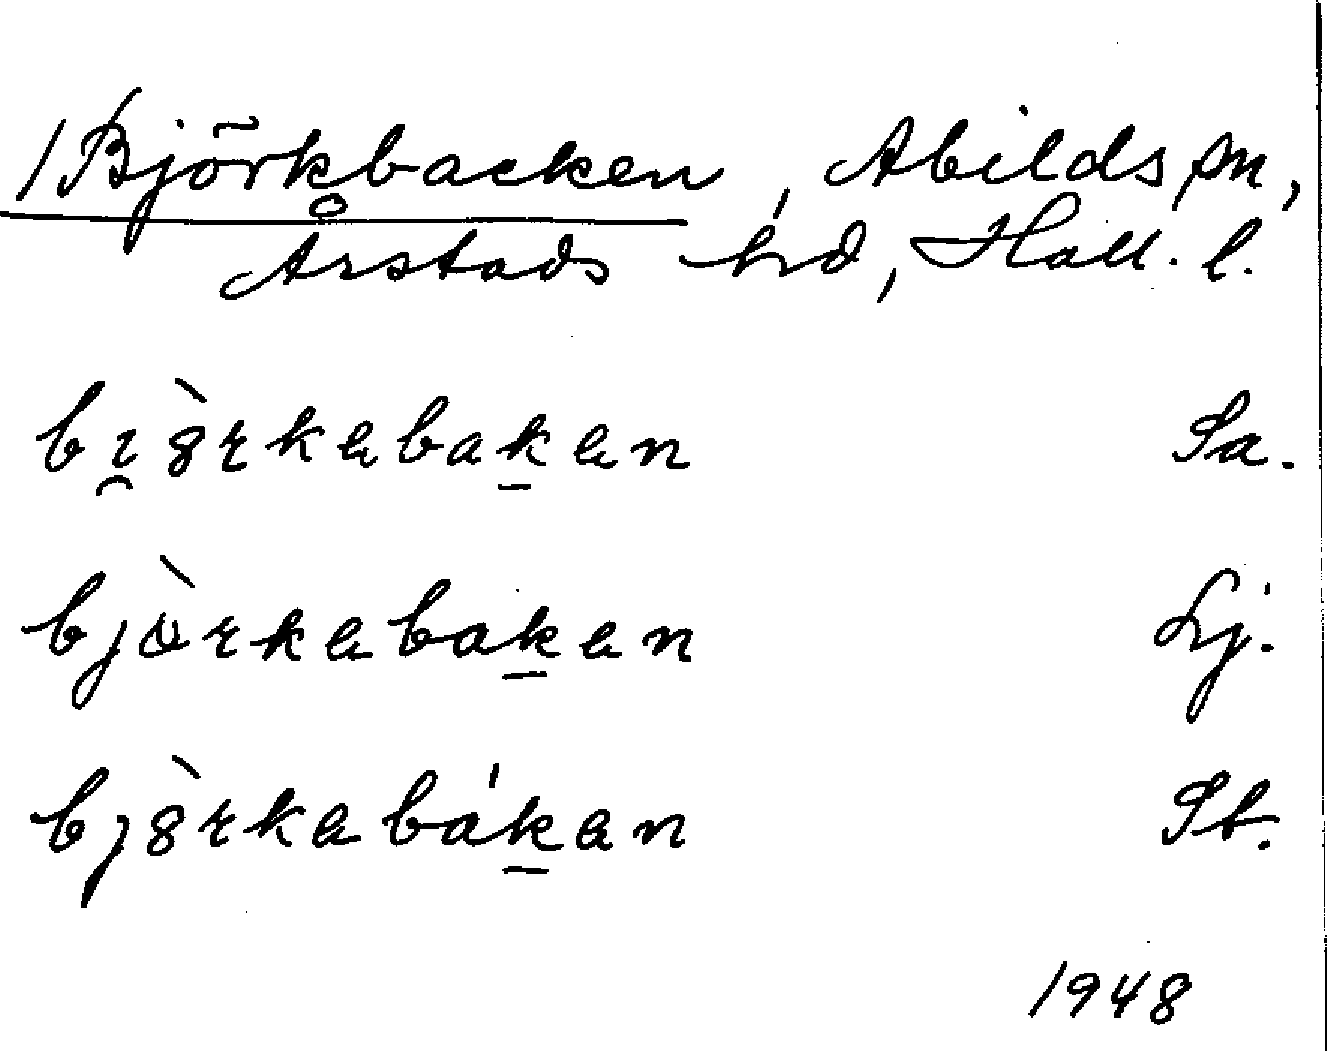 /Björkbacken, Abilds sn,
Årstads hd, Hall. l.
bı̯ö̀rkabaḵan Sa.
bjö̀rkabaḵan Lj.
bjö̀rkabáḵan St.
1948